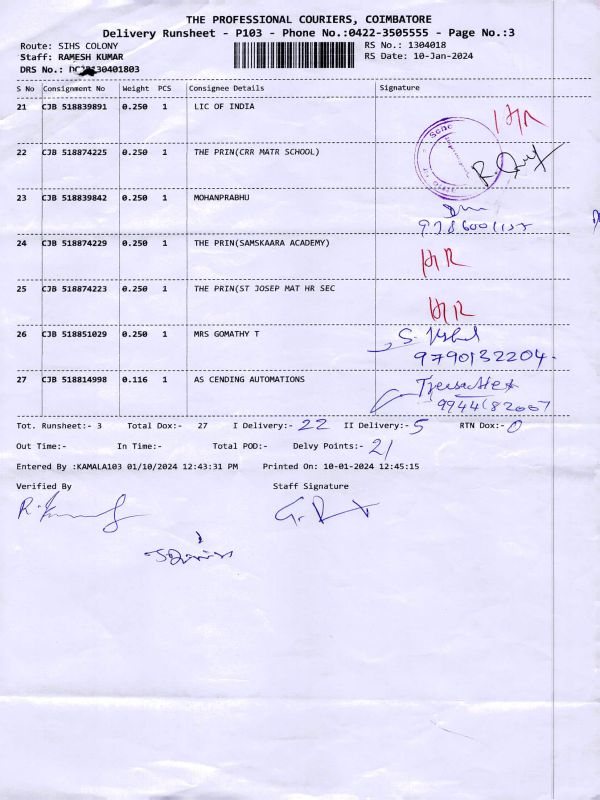 THE PROFESSIONAL COURIERS, COIMBATORE
Delivery Runsheet - P103 - Phone No.:0422-3505555 - Page No.:3
Route: SIHS COLONY RS No.: 1304018
Staff: RAMESH KUMAR RS Date: 10-Jan-2024
DRS No.:
S No Consignment No Weight PCS Consignee Details Signature
21 CJB 518839891 0.250 1 LIC OF INDIA
22 CJB 518874225 0.250 1 THE PRIN(CRR MATR SCHOOL)
23 CJB 518839842 0.250 1 MOHANPRABHU
24 CJB 518874229 0.250 1 THE PRIN(SAMSKAARA ACADEMY)
25 CJB 518874223 0.250 1 THE PRIN(ST JOSEP MAT HR SEC
26 CJB 518851029 0.250 1 MRS GOMATHY T
9790132204.
27 CJB 518814998 0.116 1 AS CENDING AUTOMATIONS
Tot. Runsheet:- 3 Total Dox:- 27 I Delivery:- 22 II Delivery:- 5 RTN Dox:- 0
Out Time:- In Time:- Total POD:- Delvy Points:- 21
Entered By :KAMALA103 01/10/2024 12:43:31 PM Printed On: 10-01-2024 12:45:15
Verified By Staff Signature